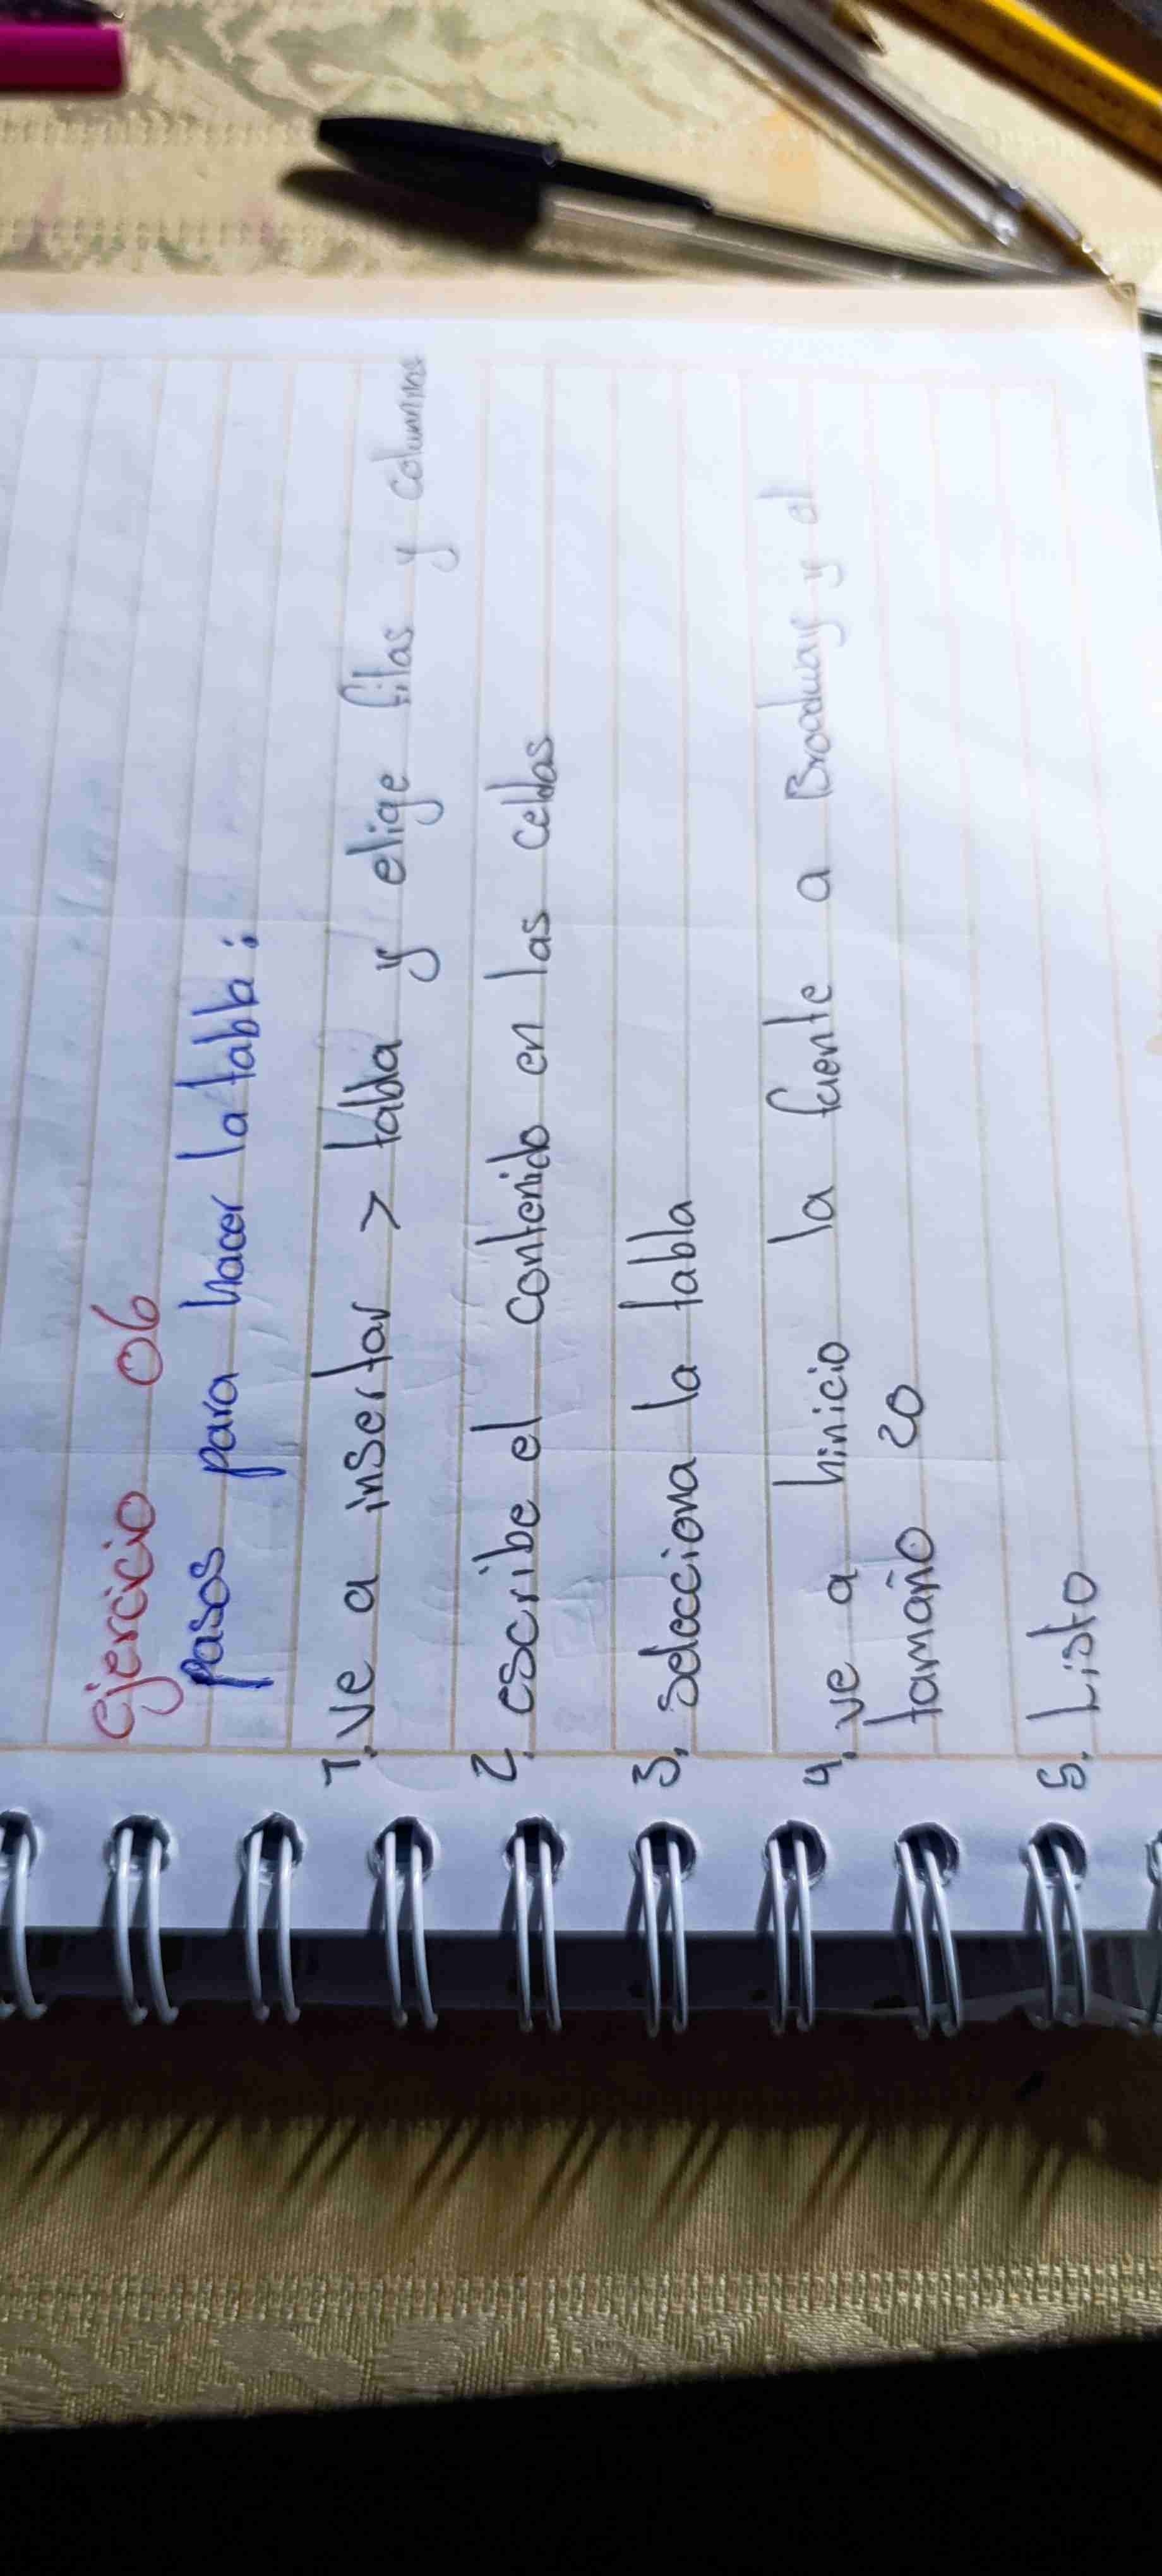 Ejercicio 06
pasos para hacer la tabla:
1. ve a insertar > tabla y elige filas y columnas
2. escribe el contenido en las celdas
3. selecciona la tabla
4. ve a hinicio la fuente a Broadway y el
tamaño 20
5. Listo